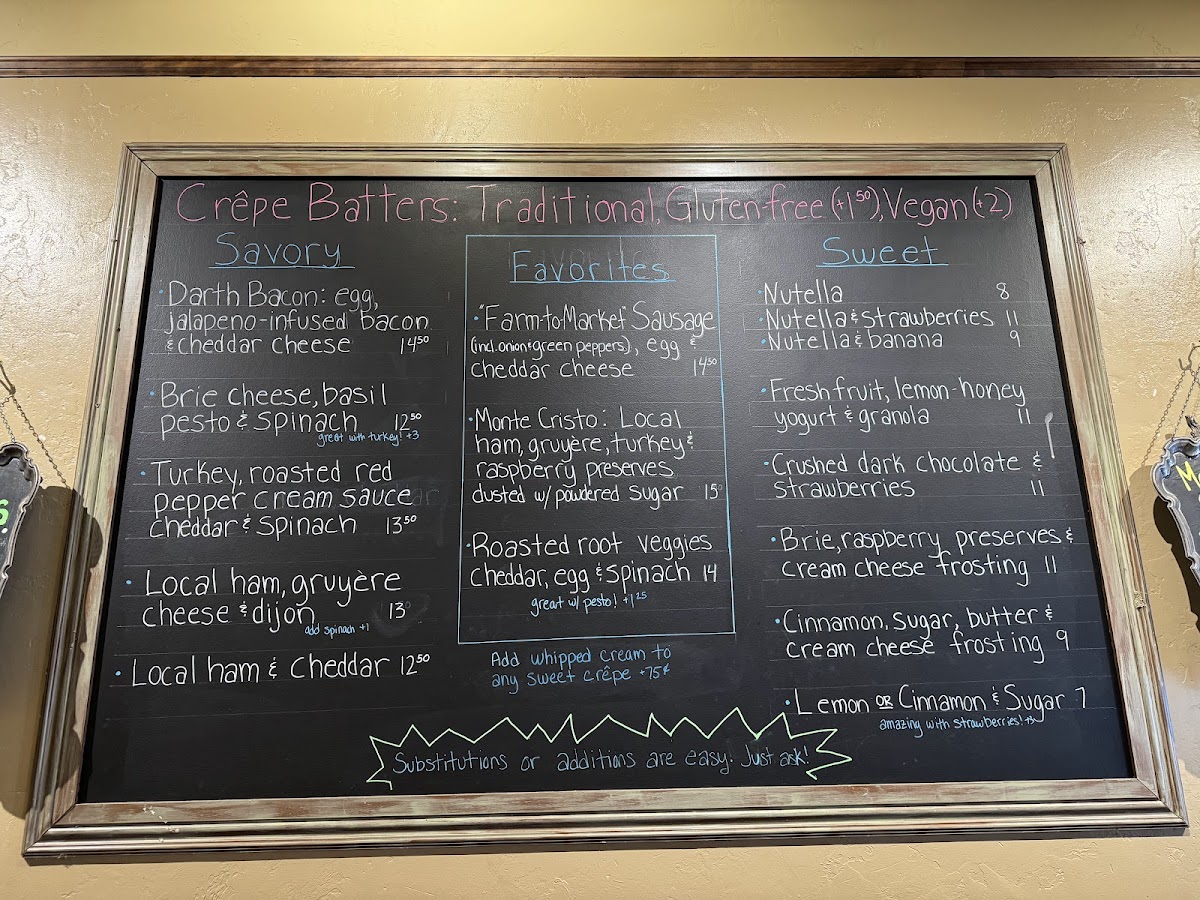 Crêpe Batters: Traditional, Gluten-free (+1⁵⁰), Vegan (+2)
Savory
• Darth Bacon: egg,
jalapeno-infused bacon
& cheddar cheese 14⁵⁰
• Brie cheese, basil
pesto & spinach 12⁵⁰
great with turkey! +3
• Turkey, roasted red
pepper cream sauce
cheddar & spinach 13⁵⁰
• Local ham, gruyère
cheese & dijon 13
add spinach +1
• Local ham & cheddar 12⁵⁰
Favorites
• "Farm-to-Market" Sausage
(incl. onion & green peppers), egg &
cheddar cheese 14⁵⁰
• Monte Cristo: Local
ham, gruyère, turkey &
raspberry preserves
dusted w/ powdered sugar 15
• Roasted root veggies
cheddar, egg & spinach 14
great w/ pesto! +1²⁵
Add whipped cream to
any sweet crêpe +75¢
Sweet
• Nutella 8
• Nutella & strawberries 11
• Nutella & banana 9
• Fresh fruit, lemon-honey
yogurt & granola 11
• Crushed dark chocolate &
strawberries 11
• Brie, raspberry preserves &
cream cheese frosting 11
• Cinnamon, sugar, butter &
cream cheese frosting 9
• Lemon OR Cinnamon & Sugar 7
amazing with strawberries!
Substitutions or additions are easy. Just ask!